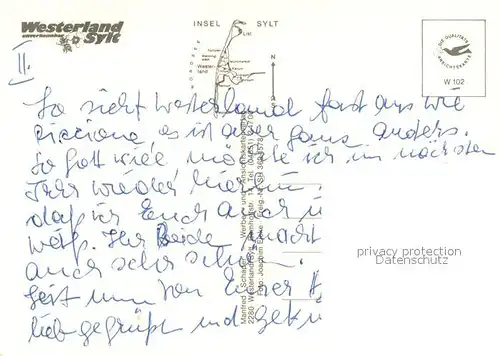 Westerland
unverkennbar
Sylt
INSEL SYLT
NORDSEE
List
Kampen
Wenningstedt
Westerland
Keitum
DIE QUALITÄTS
ANSICHTSKARTE
W 102
II.
So sieht Westerland fast aus wie
Riccione, es ist aber ganz anders.
So Gott will möchte ich im nächsten
Jahr wieder hierin
daß ich Euch auch
weiß. Ihr Beide macht
auch sehr
Seit nun von Eurer
lieb gegrüßt und
Manfred Schäfer Werbe- und Ansichtskartenverlag
2280 Westerland/Sylt
Foto: Joachim Freig.-Nr. SH
privacy protection
Datenschutz